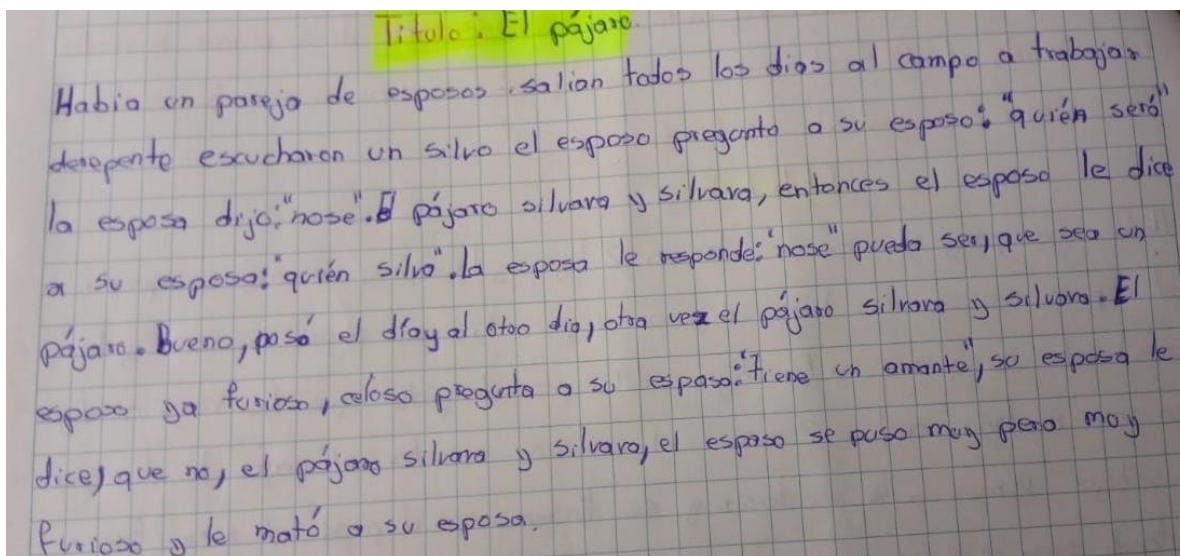 Titulo: El pájaro.
Habia un pareja de esposos. salian todos los dias al campo a trabajar
derepente escucharon un silvo el esposo pregunto a su esposa: "quién será"
la esposa dijo: "nose". El pájaro silvara y silvara, entonces el esposo le dice
a su esposa: "quién silva". la esposa le responde: "nose" pueda ser, que sea un
pájaro. Bueno, pasó el día y al otro dia, otra vez el pájaro silvara y silvara. El
esposo ya furioso, celoso pregunta a su esposa: "Tiene un amante", su esposa le
dice, que no, el pájaro silvara y silvara, el esposo se puso muy pero muy
furioso y le mató a su esposa.